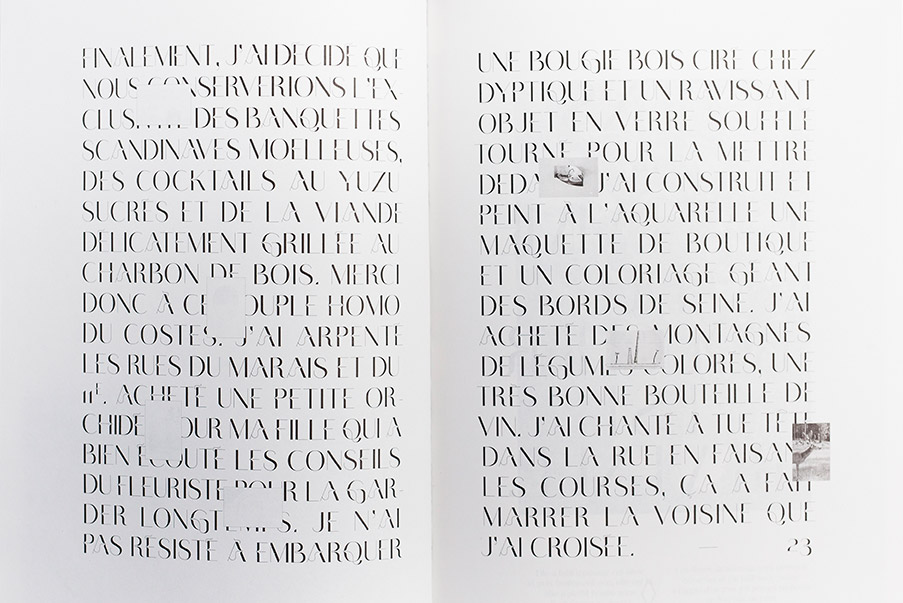 FINALEMENT, J'AI DÉCIDÉ QUE
NOUS CONSERVERIONS L'EX-
CLUS DES BANQUETTES
SCANDINAVES MOELLEUSES,
DES COCKTAILS AU YUZU
SUCRÉS ET DE LA VIANDE
DÉLICATEMENT GRILLÉE AU
CHARBON DE BOIS. MERCI
DONC À CE COUPLE HOMO
DU COSTES. J'AI ARPENTÉ
LES RUES DU MARAIS ET DU
11E. ACHETÉ UNE PETITE OR-
CHIDÉE POUR MA FILLE QUI A
BIEN ÉCOUTÉ LES CONSEILS
DU FLEURISTE POUR LA GAR-
DER LONGTEMPS. JE N'AI
PAS RÉSISTÉ À EMBARQUER
UNE BOUGIE BOIS CIRÉ CHEZ
DYPTIQUE ET UN RAVISSANT
OBJET EN VERRE SOUFFLÉ
TOURNÉ POUR LA METTRE
DEDA J'AI CONSTRUIT ET
PEINT À L'AQUARELLE UNE
MAQUETTE DE BOUTIQUE
ET UN COLORIAGE GÉANT
DES BORDS DE SEINE. J'AI
ACHETÉ DES MONTAGNES
DE LÉGUMES COLORÉS, UNE
TRÈS BONNE BOUTEILLE DE
VIN. J'AI CHANTÉ À TUE TÊTE
DANS LA RUE EN FAISANT
LES COURSES, ÇA A FAIT
MARRER LA VOISINE QUE
J'AI CROISÉE.
23